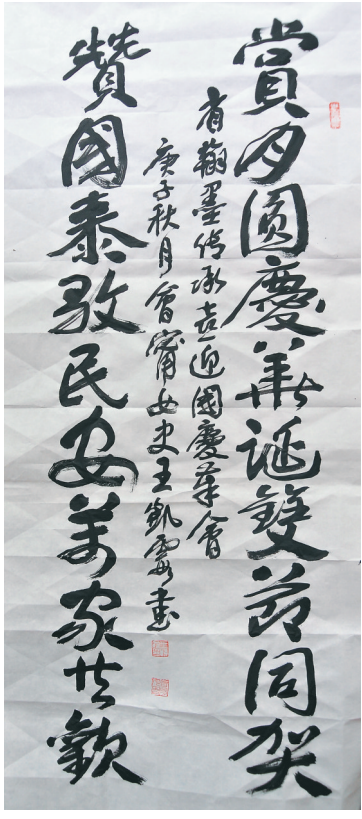 賞月圓慶華誕雙節同賀
翰墨傳承喜迎國慶筆會
庚子秋月會甯女史王凱霞書
贊國泰歌民安萬家共歡